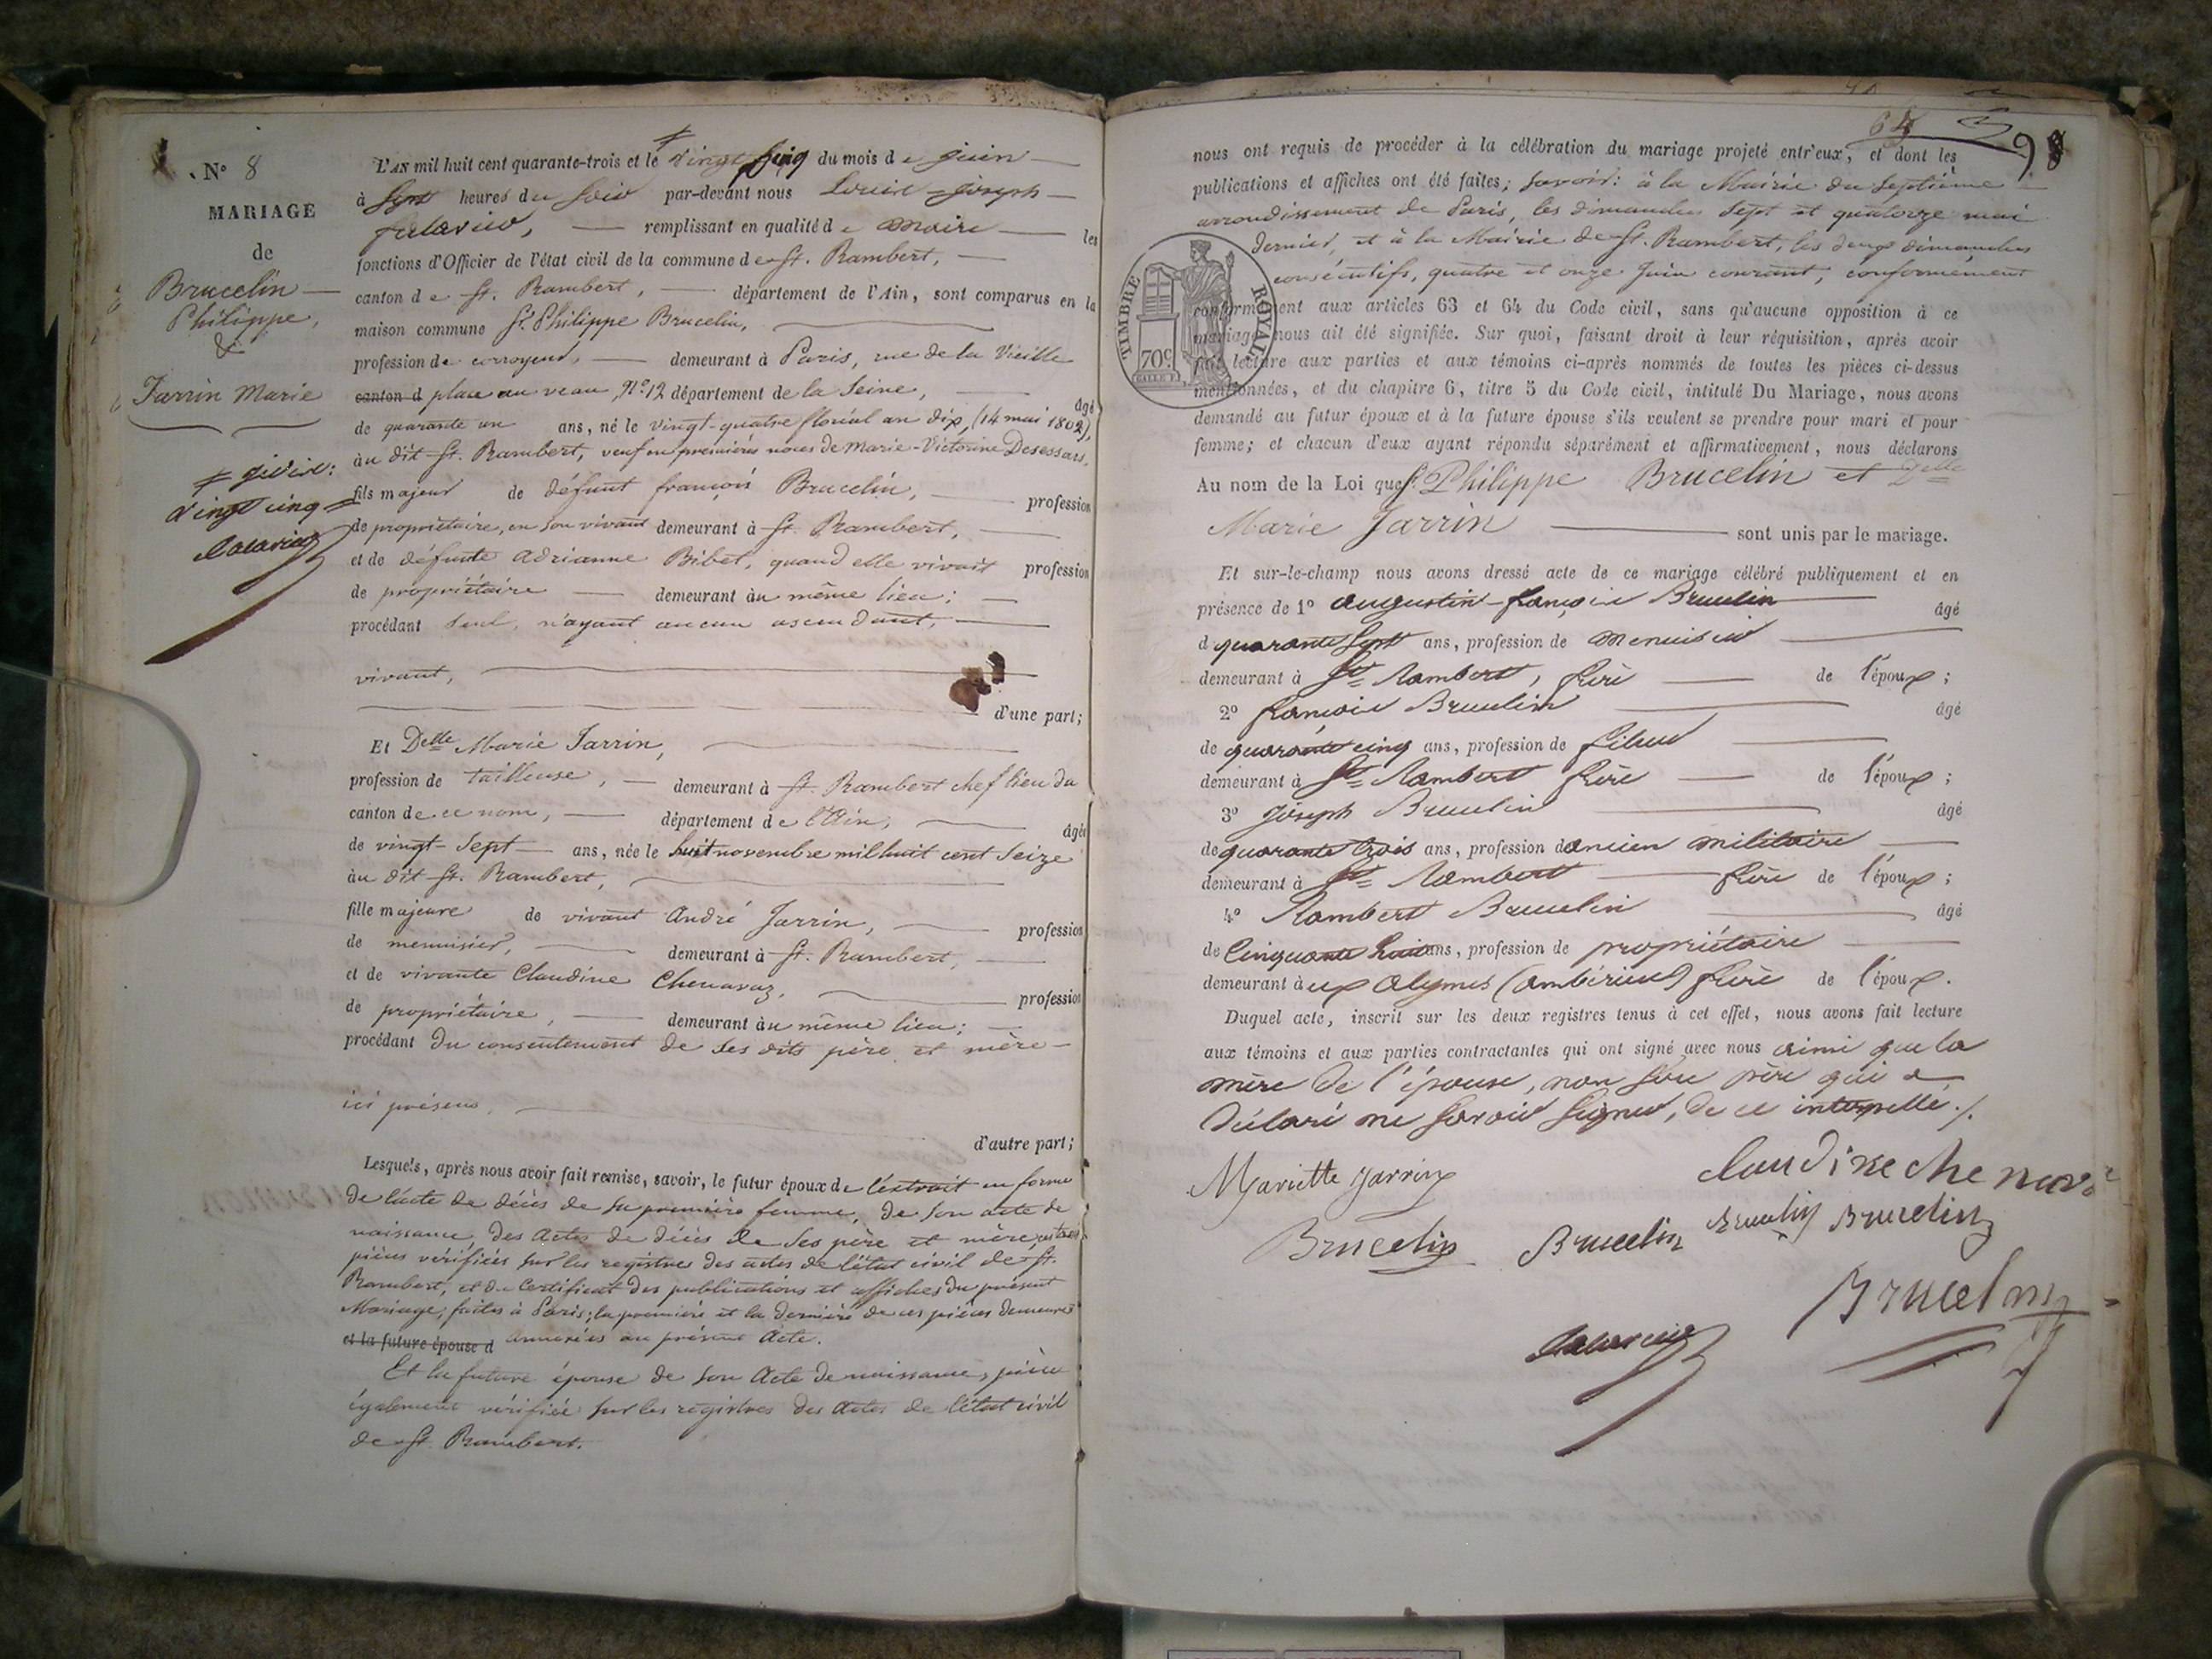 N° 8
MARIAGE
de
Brucelin
Philippe,
&
Jarrin Marie
vingt cinq
L'AN mil huit cent quarante-trois et le vingt cinq du mois de juin
à sept heures du soir par-devant nous Louis-Joseph
remplissant en qualité de maire les
fonctions d'Officier de l'état civil de la commune de St. Rambert,
canton de St. Rambert, département de l'Ain, sont comparus en la
maison commune Sr. Philippe Brucelin,
profession de corroyeur, demeurant à Paris, rue de la Vieille
canton d place au veau, N° 12 département de la Seine,
âgé
de quarante un ans, né le vingt-quatre floréal an dix, (14 mai 1802),
au dit St. Rambert, veuf en premières noces de Marie-Victorine Desessars,
fils majeur de défunt françois Brucelin, profession
de propriétaire, en son vivant demeurant à St. Rambert,
et de défunte Adrianne Bibet, quand elle vivait profession
de propriétaire demeurant au même lieu;
procédant seul, n'ayant aucun ascendant,
vivant,
d'une part;
Et Delle Marie Jarrin,
profession de tailleuse, demeurant à St. Rambert chef lieu du
canton de ce nom, département de l'Ain,
âgée
de vingt-sept ans, née le huit novembre mil huit cent seize
au dit St. Rambert,
fille majeure de vivant André Jarrin, profession
de menuisier, demeurant à St. Rambert,
et de vivante Claudine Chenavaz, profession
de propriétaire, demeurant au même lieu;
procédant du consentement de ses dits père et mère
ici présens,
d'autre part;
Lesquels, après nous avoir fait remise, savoir, le futur époux de l'extrait en forme
de l'acte de décès de sa première femme, de son acte de
naissance, des actes de décès de ses père et mère, ces trois
pièces vérifiées sur les registres des actes de l'état civil de St.
Rambert, et du certificat des publications et affiches du présent
Mariage, faites à Paris; la première et la dernière de ces pièces demeurées
et la future épouse d annexées au présent acte.
Et la future épouse de son Acte de naissance, pièce
également vérifiée sur les registres des Actes de l'état civil
de St. Rambert.
64
98
nous ont requis de procéder à la célébration du mariage projeté entr'eux, et dont les
publications et affiches ont été faites; savoir: à la Mairie du septième
arrondissement de Paris, les dimanches sept et quatorze mai
dernier, et à la Mairie de St. Rambert, les deux dimanches
consécutifs, quatre et onze Juin courant, conformément
conformément aux articles 63 et 64 du Code civil, sans qu'aucune opposition à ce
mariage nous ait été signifiée. Sur quoi, faisant droit à leur réquisition, après avoir
fait lecture aux parties et aux témoins ci-après nommés de toutes les pièces ci-dessus
mentionnées, et du chapitre 6, titre 5 du Code civil, intitulé Du Mariage, nous avons
demandé au futur époux et à la future épouse s'ils veulent se prendre pour mari et pour
femme; et chacun d'eux ayant répondu séparément et affirmativement, nous déclarons
Au nom de la Loi que Sr. Philippe Brucelin et Delle
Marie Jarrin sont unis par le mariage.
TIMBRE ROYAL
70c
Et sur-le-champ nous avons dressé acte de ce mariage célébré publiquement et en
présence de 1° augustin-françois Brucelin âgé
d quarante sept ans, profession de menuisier
demeurant à St Rambert, frère de l'époux;
2° françois Brucelin âgé
de quarante cinq ans, profession de fileur
demeurant à St Rambert frère de l'époux;
3° joseph Brucelin âgé
de quarante trois ans, profession d ancien militaire
demeurant à St Rambert frère de l'époux;
4° Rambert Brucelin âgé
de cinquante huit ans, profession de propriétaire
demeurant à ux alymes (ambérieux) frère de l'époux.
Duquel acte, inscrit sur les deux registres tenus à cet effet, nous avons fait lecture
aux témoins et aux parties contractantes qui ont signé avec nous ainsi que la
mère de l'épouse, non son père qui a
déclaré ne savoir signer, de ce interpellé ./.
Mariette Jarrin
claudine chenava
Brucelin
Brucelin
Brucelin
Brucelin
Brucelin